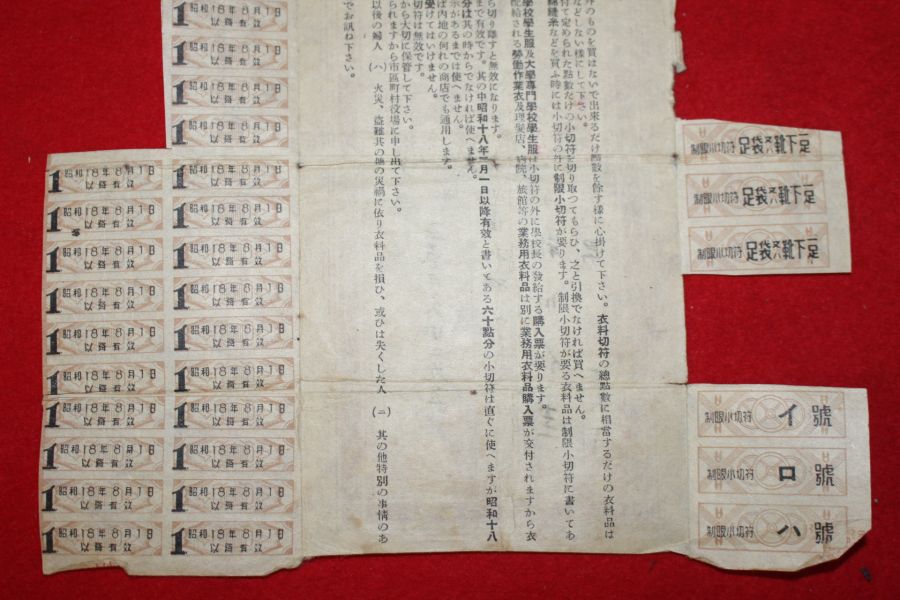 外のものを買はないで出来るだけ點數を餘す樣に心掛けて下さい。衣料切符の總點數に相當するだけの衣料品は
などしない樣にして下さい。
付て定められた點數だけの小切符を切り取つてもらひ、之と引換でなければ買へません。
綿縫糸などを買ふ時には小切符の外に制限小切符が要ります。制限小切符が要る衣料品は制限小切符に書いてあ
學校學生服及大學專門學校學生服は小切符の外に學校長の發給する購入票が要ります。
配給される勞働作業衣及理髮店、病院、旅館等の業務用衣料品は別に業務用衣料品購入票が交付されますから衣
ら切り離すと無效になります。
まで有效です。其の中昭和十八年二月一日以降有效と書いてある六十點分の小切符は直ぐに使へますが昭和十八
分は其の時からでなければ使へません。
示があるまでは使へません。
ば内地の何れの商店でも通用します。
受けてはいけません。
切符は無效です。
から大切に保管して下さい。
られますから市區町村役場に申し出て下さい。
以後の婦人 (ハ) 火災、盜難其の他の災禍に依り衣料品を損ひ、或ひは失くした人 (ニ) 其の他特別の事情のあ
でお訊ね下さい。
制限小切符 足袋又ハ靴下 足
制限小切符 足袋又ハ靴下 足
制限小切符 足袋又ハ靴下 足
制限小切符 イ 號
制限小切符 ロ 號
制限小切符 ハ 號
昭和18年8月1日
以降有效
昭和18年8月1日
以降有效
昭和18年8月1日
以降有效
1 昭和18年8月1日
以降有效
1 昭和18年8月1日
以降有效
1 昭和18年8月1日
以降有效
1 昭和18年8月1日
以降有效
1 昭和18年8月1日
以降有效
1 昭和18年8月1日
以降有效
1 昭和18年8月1日
以降有效
1 昭和18年8月1日
以降有效
1 昭和18年8月1日
以降有效
1 昭和18年8月1日
以降有效
1 昭和18年8月1日
以降有效
1 昭和18年8月1日
以降有效
1 昭和18年8月1日
以降有效
1 昭和18年8月1日
以降有效
1 昭和18年8月1日
以降有效
1 昭和18年8月1日
以降有效
1 昭和18年8月1日
以降有效
1 昭和18年8月1日
以降有效
1 昭和18年8月1日
以降有效
1 昭和18年8月1日
以降有效